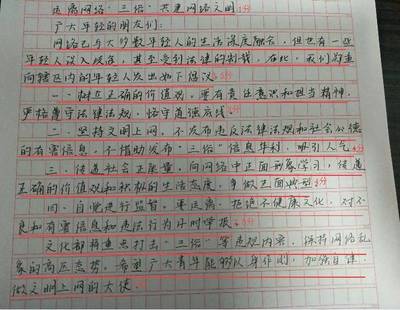 远离网络“三俗”共建网络文明
广大年轻的朋友们:
网络已与大多数年轻人的生活深度融合,但也有一些
年轻人误入歧途,甚至受到法律的制裁,在此,我们郑重
向辖区内的年轻人发出如下倡议 5分
一、树立正确的价值观,要有责任意识和担当精神,
严格遵守法律法规,恪守道德底线。5分
二、坚持文明上网,不发布违反法律法规和社会公德
的有害信息,不借助发布“三俗”信息牟利,吸引人气 5分
三、传递社会正能量,向网络中正面形象学习,传递
正确的价值观和积极的生活态度,争做正面典型 5分
四、自觉进行监督,要远离、拒绝不健康文化,对不
良和有害信息和违法行为及时举报。5分
文化部将重点打击“三俗”等违规内容,保持网络乱
象的高压态势,希望广大青年能够以身作则,加强自律
做文明上网的大使。